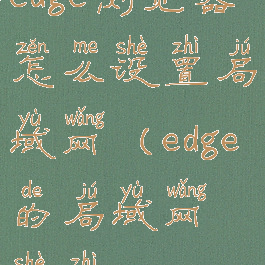 edge浏览器
zěn me shè zhì jú
怎么设置局
yù wǎng
域网（edge
de jú yù wǎng
的局域网
shè zhì